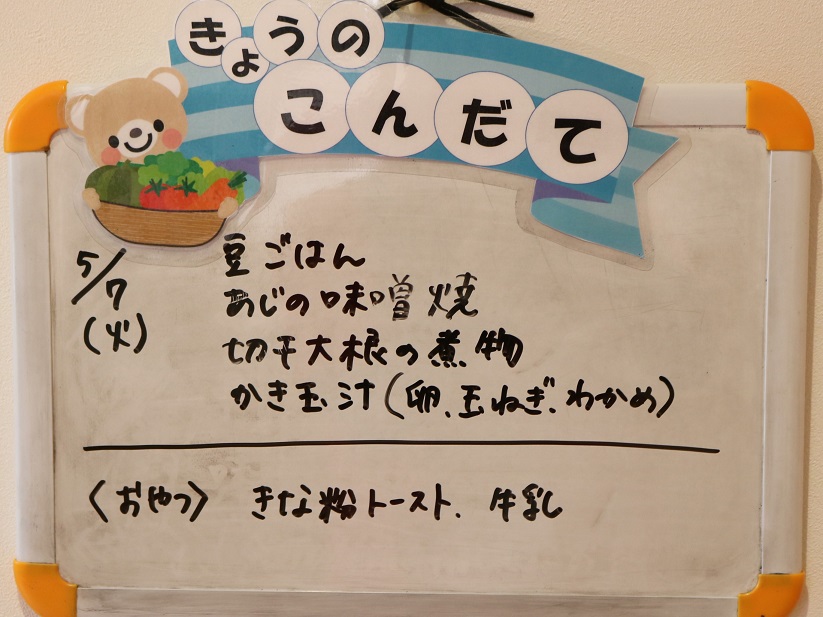 きょうの
こんだて
5/7
(火)
豆ごはん
あじの味噌焼
切干大根の煮物
かき玉汁(卵、玉ねぎ、わかめ)
〈おやつ〉 きな粉トースト、牛乳